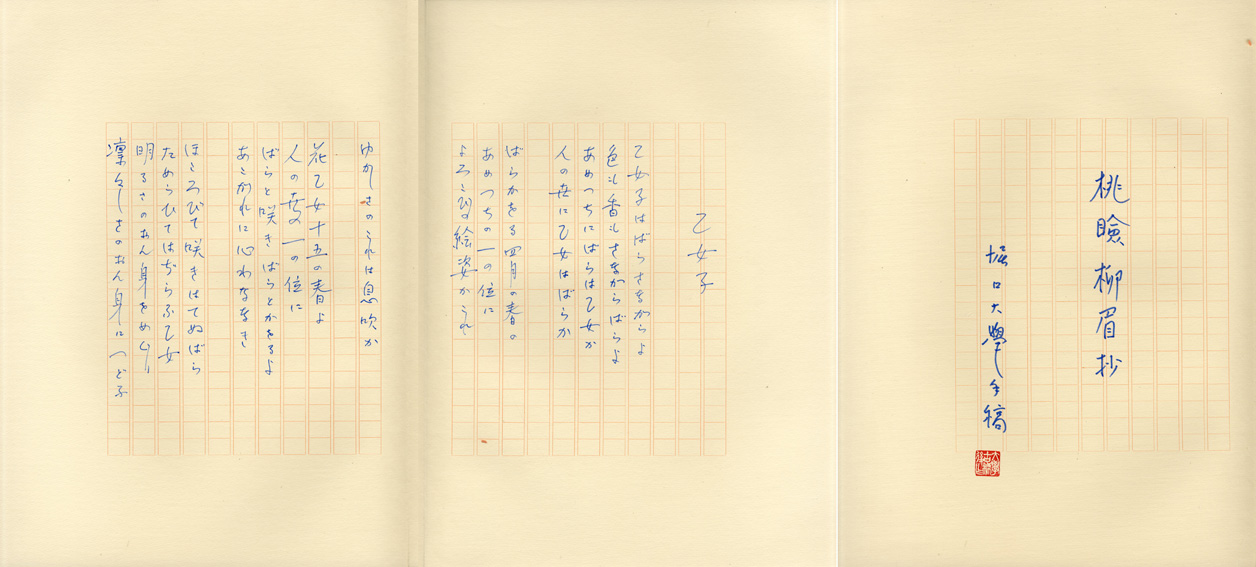 桃瞼柳眉抄
堀口大學手稿
乙女子
乙女子はばらさながらよ
色も香もさながらばらよ
あめつちにばらは乙女か
人の世に乙女はばらか
ばらかをる四月の春の
あめつちの一の位に
よろこびの絵姿かうれ
ゆかしさのうれは息吹か
花乙女十五の春よ
人の世の一の位に
ばらと咲きばらとかをるよ
あこがれに心わななき
ほころびて咲きはてぬばら
ためらひてはぢらふ乙女
明るさのおん身をめぐり
凛々しさのおん身につどふ